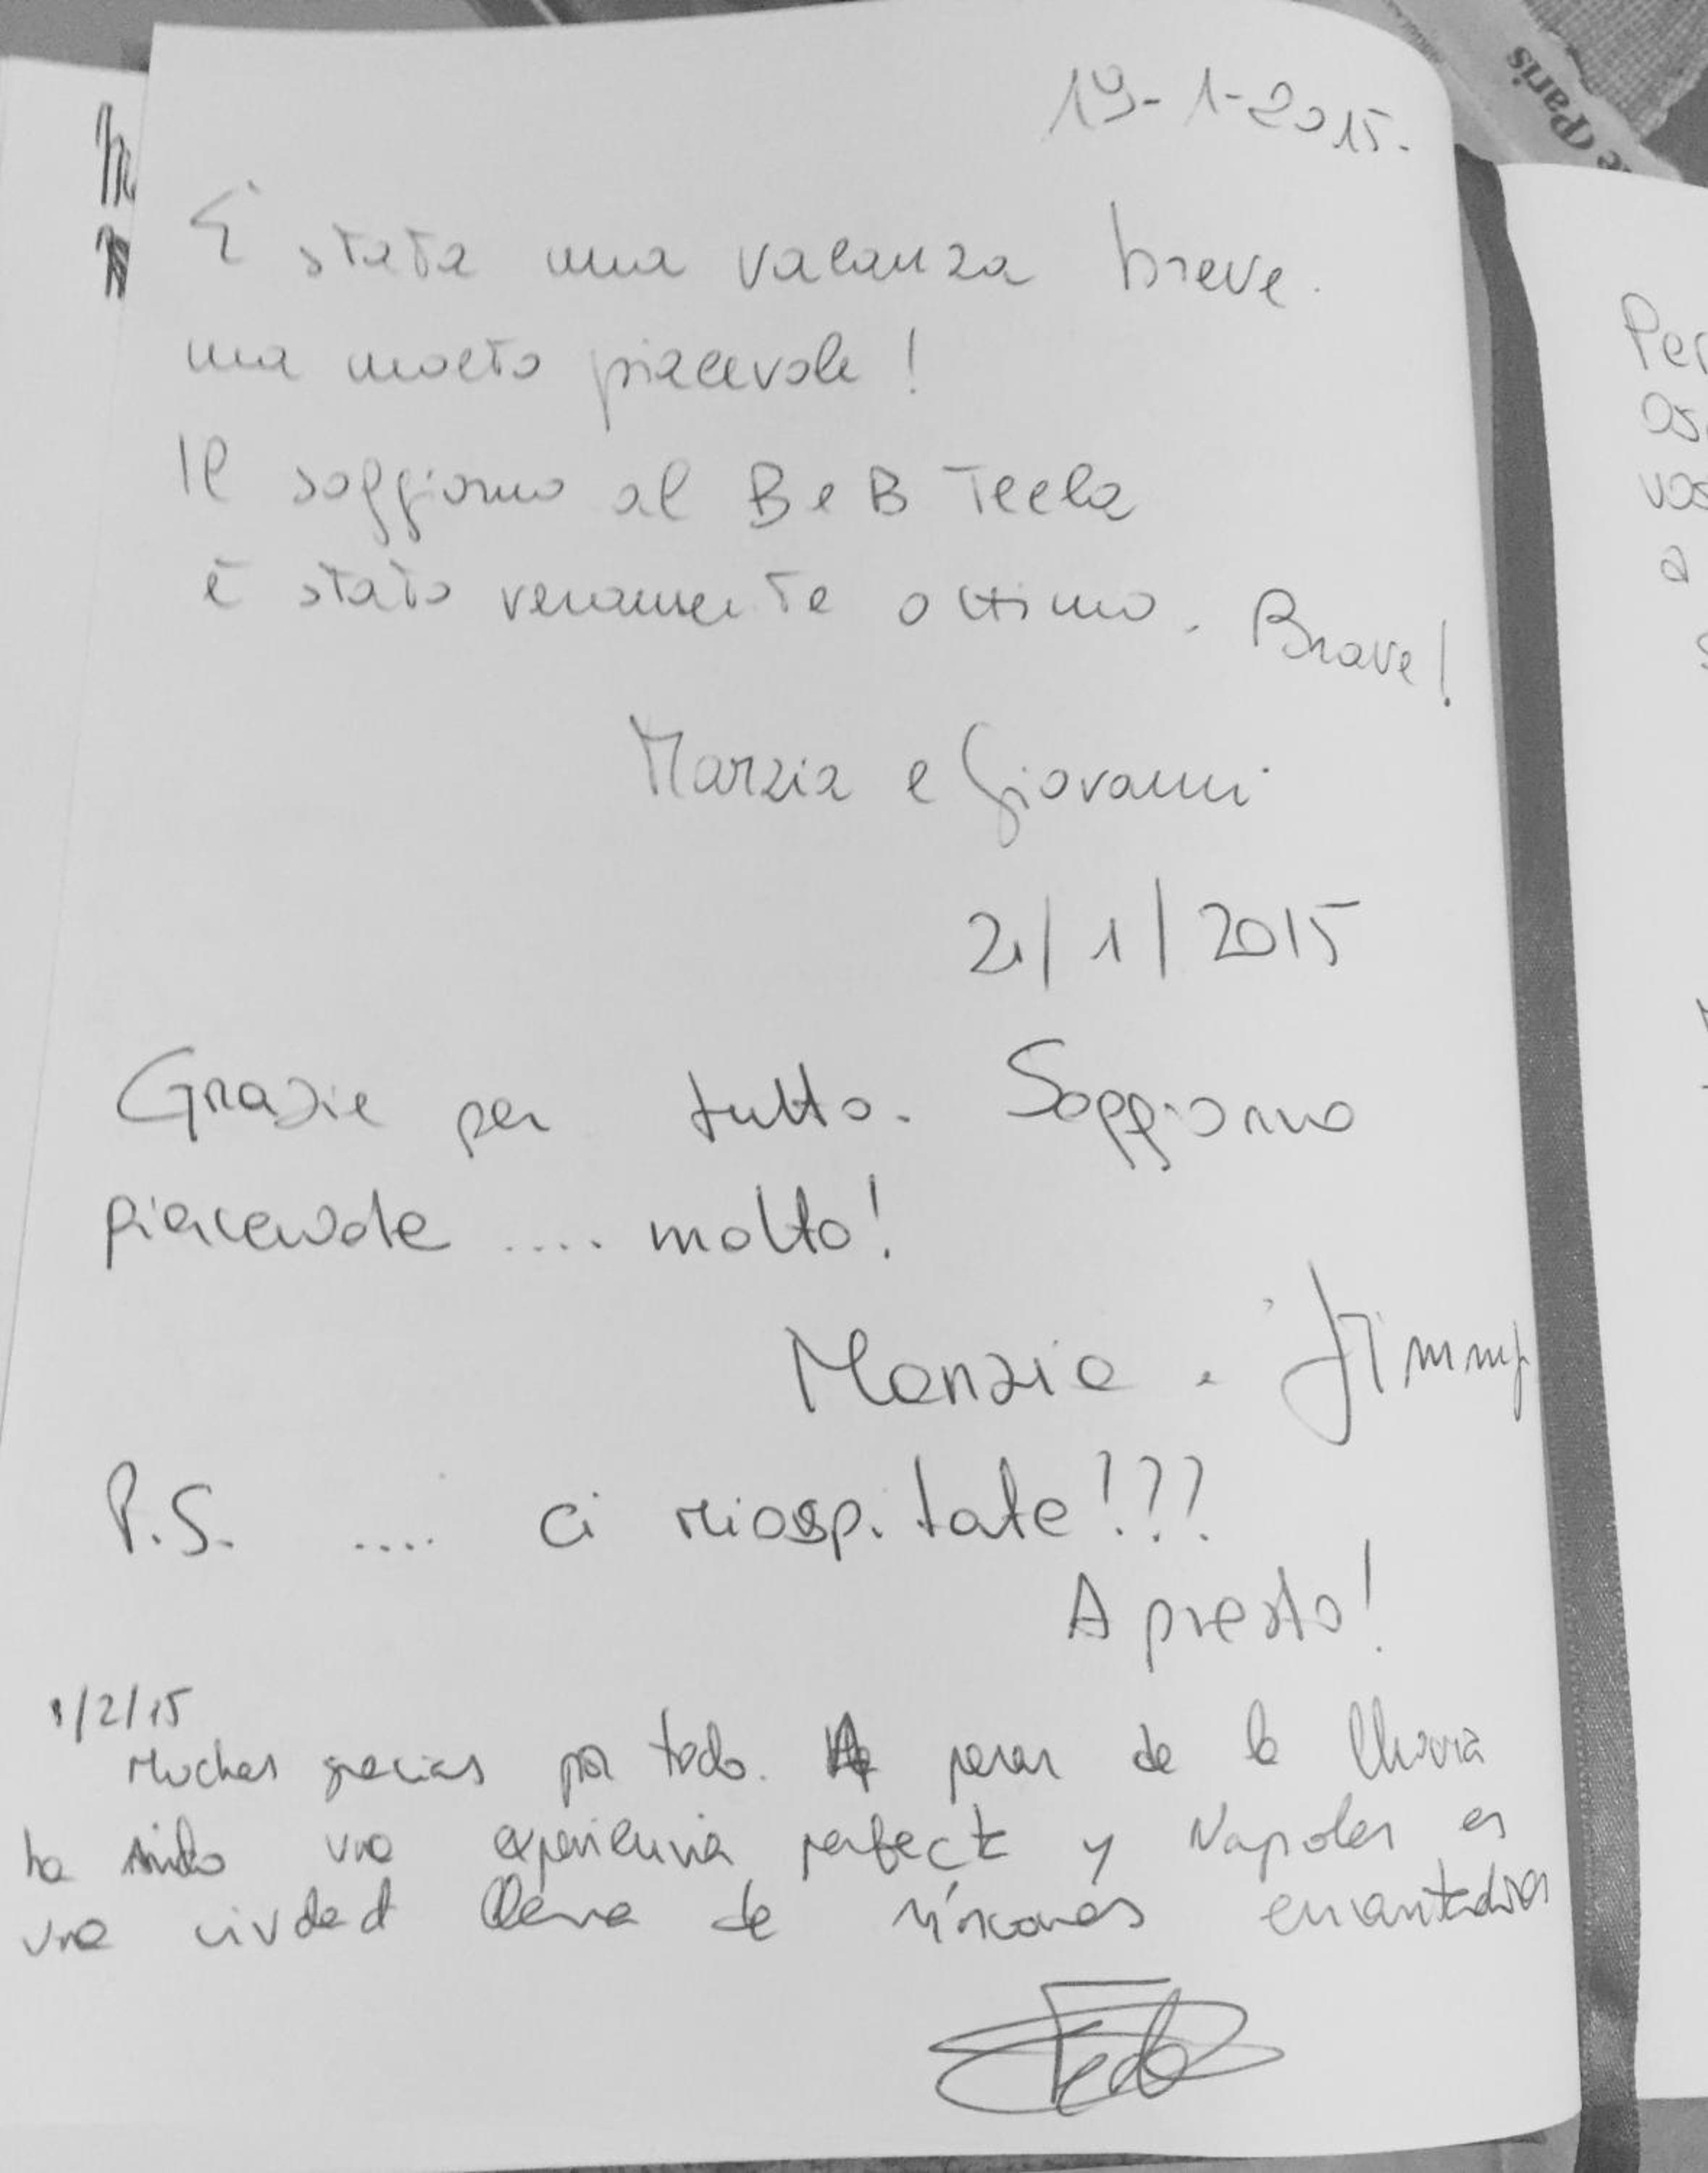 19-1-2015.
È stata una vacanza breve.
ma molto piacevole!
Il soggiorno al B e B Tecla
è stato veramente ottimo. Brave!
Marzia e Giovanni
21/1/2015
Grazie per tutto. Soggiorno
piacevole .... molto!
Marzia e Jimmy
P.S. .... ci riospitate!???
A presto!
1/2/15
Muchas gracias por todo. A pesar de la lluvia
ha sido una experiencia perfecta y Napoles es
una ciudad llena de rincones encantadores
e (Paris
Per
os
vos
a